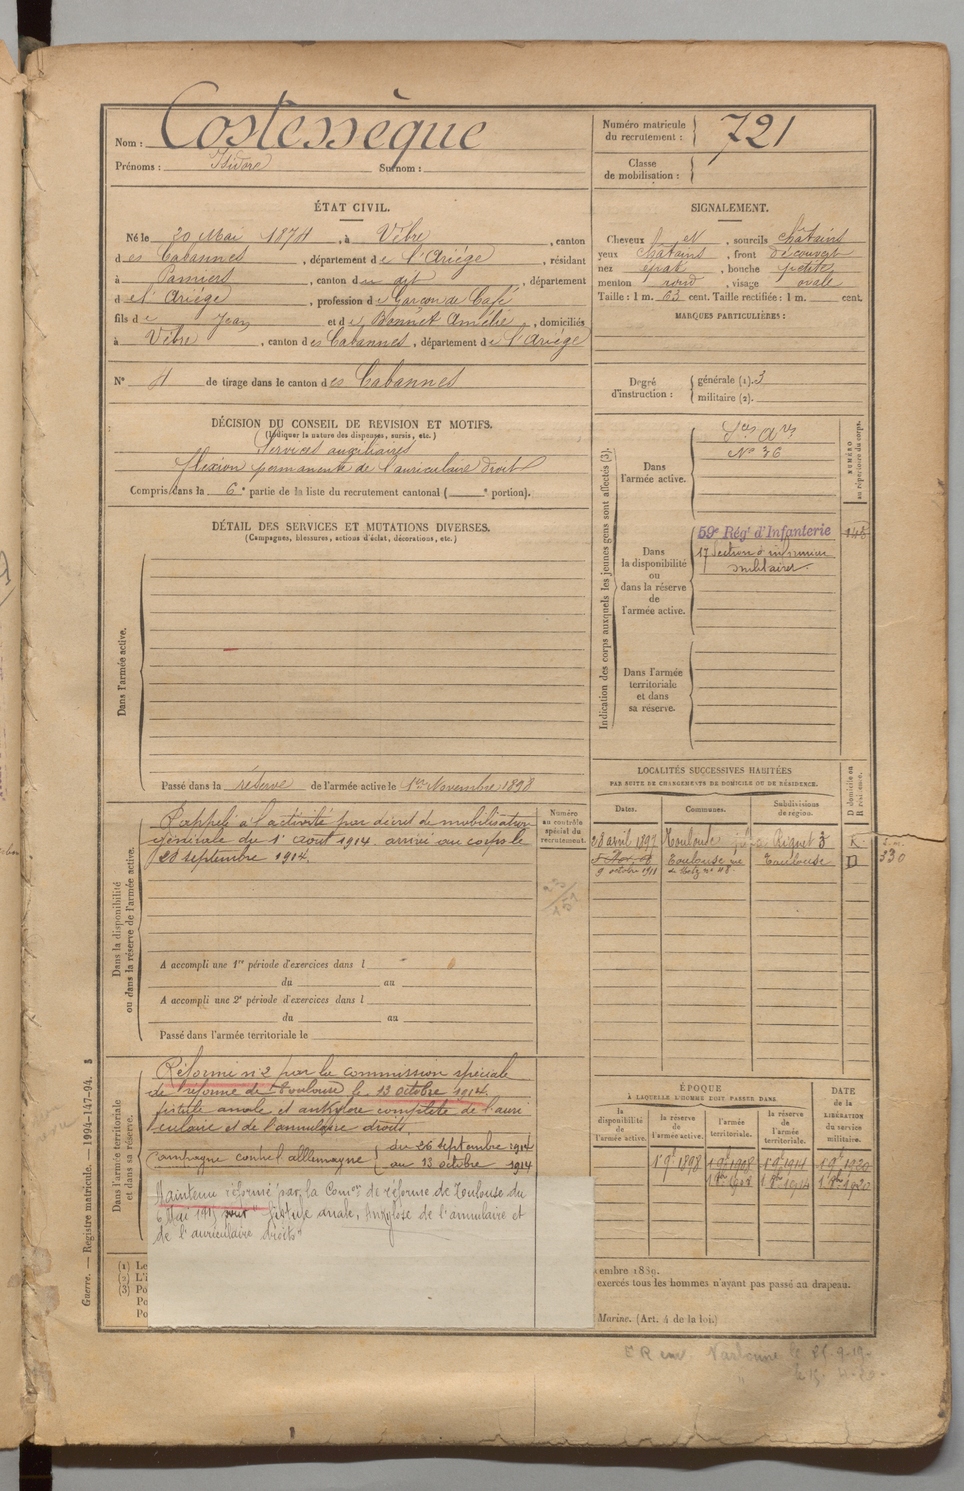 Nom : Costessèque
Prénoms : Isidore Surnom :
Numéro matricule du recrutement : 721
Classe de mobilisation :
ÉTAT CIVIL.
Né le 20 Mai 1874, à Vèbre, canton
des Cabannes, département de l'Ariège, résidant
à Pamiers, canton du dit, département
de l'Ariège, profession de Garçon de Café
fils de Jean et de Bonnet Amélie, domiciliés
à Vèbre, canton des Cabannes, département de l'Ariège
N° 4 de tirage dans le canton des Cabannes
SIGNALEMENT.
Cheveux et, sourcils châtains
yeux châtains, front découvert
nez épat, bouche petite
menton rond, visage ovale
Taille : 1 m. 63 cent. Taille rectifiée : 1 m. cent.
MARQUES PARTICULIÈRES :
Degré d'instruction : générale (1). 3
militaire (2).
DÉCISION DU CONSEIL DE REVISION ET MOTIFS.
(Indiquer la nature des dispenses, sursis, etc.)
Services auxiliaires
flexion permanente de l'auriculaire droit
Compris dans la 6e partie de la liste du recrutement cantonal ( e portion).
DÉTAIL DES SERVICES ET MUTATIONS DIVERSES.
(Campagnes, blessures, actions d'éclat, décorations, etc.)
Dans l'armée active.
Passé dans la réserve de l'armée active le 1er Novembre 1898
Indication des corps auxquels les jeunes gens sont affectés (3).
NUMÉRO au répertoire du corps.
Dans l'armée active.
Ces Ares
N° 36
Dans la disponibilité ou dans la réserve de l'armée active.
59e Régt d'Infanterie
17 Section d'infirmiers
militaires.
Dans l'armée territoriale et dans sa réserve.
Dans la disponibilité ou dans la réserve de l'armée active.
Numéro au contrôle spécial du recrutement.
Rappelé à l'activité par décret de mobilisation
générale du 1er août 1914. arrivé au corps le
20 septembre 1914.
A accompli une 1re période d'exercices dans l
du au
A accompli une 2e période d'exercices dans l
du au
Passé dans l'armée territoriale le
LOCALITÉS SUCCESSIVES HABITÉES
PAR SUITE DE CHANGEMENTS DE DOMICILE OU DE RÉSIDENCE.
Dates. Communes. Subdivisions de région. D domicile ou R résidence.
28 avril 1897 Toulouse Riquet 3 R
Toulouse rue Toulouse D 330
9 octobre 1911 de Metz n° 48.
Dans l'armée territoriale et dans sa réserve.
Réformé n° 2 par la commission spéciale
de réforme de Toulouse le 13 octobre 1914.
fistule anale et ankylose complète de l'auri
culaire et de l'annulaire droits.
Campagne contre l'allemagne du 26 septembre 1914
au 13 octobre 1914
Maintenu réformé par la Comon de réforme de Toulouse du
6 Mai 1915 pour "fistule anale, ankylose de l'annulaire et
de l'auriculaire droits"
ÉPOQUE
À LAQUELLE L'HOMME DOIT PASSER DANS
la disponibilité de l'armée active. la réserve de l'armée active. l'armée territoriale. la réserve de l'armée territoriale.
DATE de la LIBÉRATION du service militaire.
1er 9e 1898 1er 9e 1908 1er 9e 1914 1er 9e 1920
1er 8bre 1908 1er 8bre 1914 1er 8bre 1920
(1) Le
(2) L'i
(3) Po
Po
Po
cembre 1889.
exercés tous les hommes n'ayant pas passé au drapeau.
Marine. (Art. 4 de la loi.)
Guerre. — Registre matricule. — 1994-147-94. 3